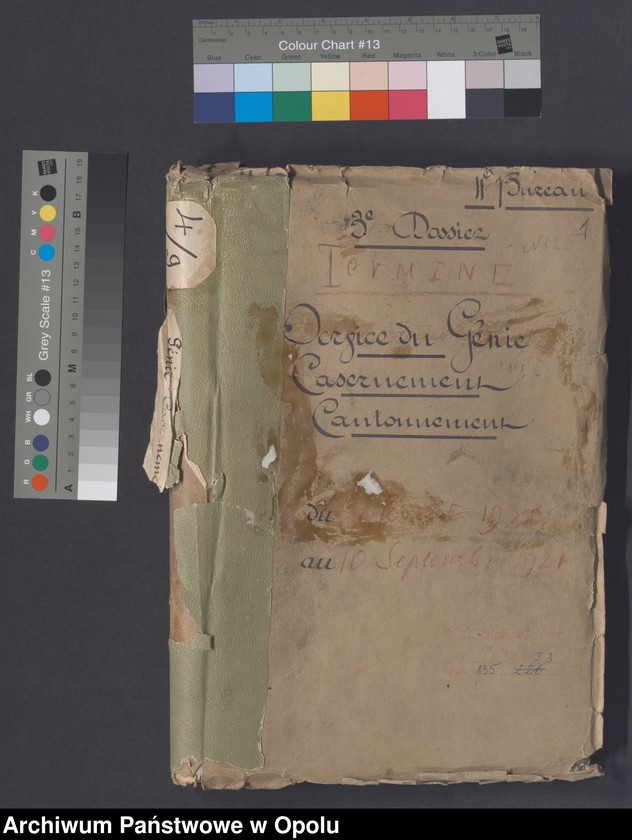 Inches
Centimetres
Colour Chart #13
Blue Cyan Green Yellow Red Magenta White 3/Color Black
Grey Scale #13
C M Y K
R G B WH GR BL
A M B
4/9
Génie
IIe Bureau
1
3e Dossier
TERMINE
Service du Génie
Casernement
Cantonnement
du
au 10 Septembre 1921
33
135 226
Archiwum Państwowe w Opolu